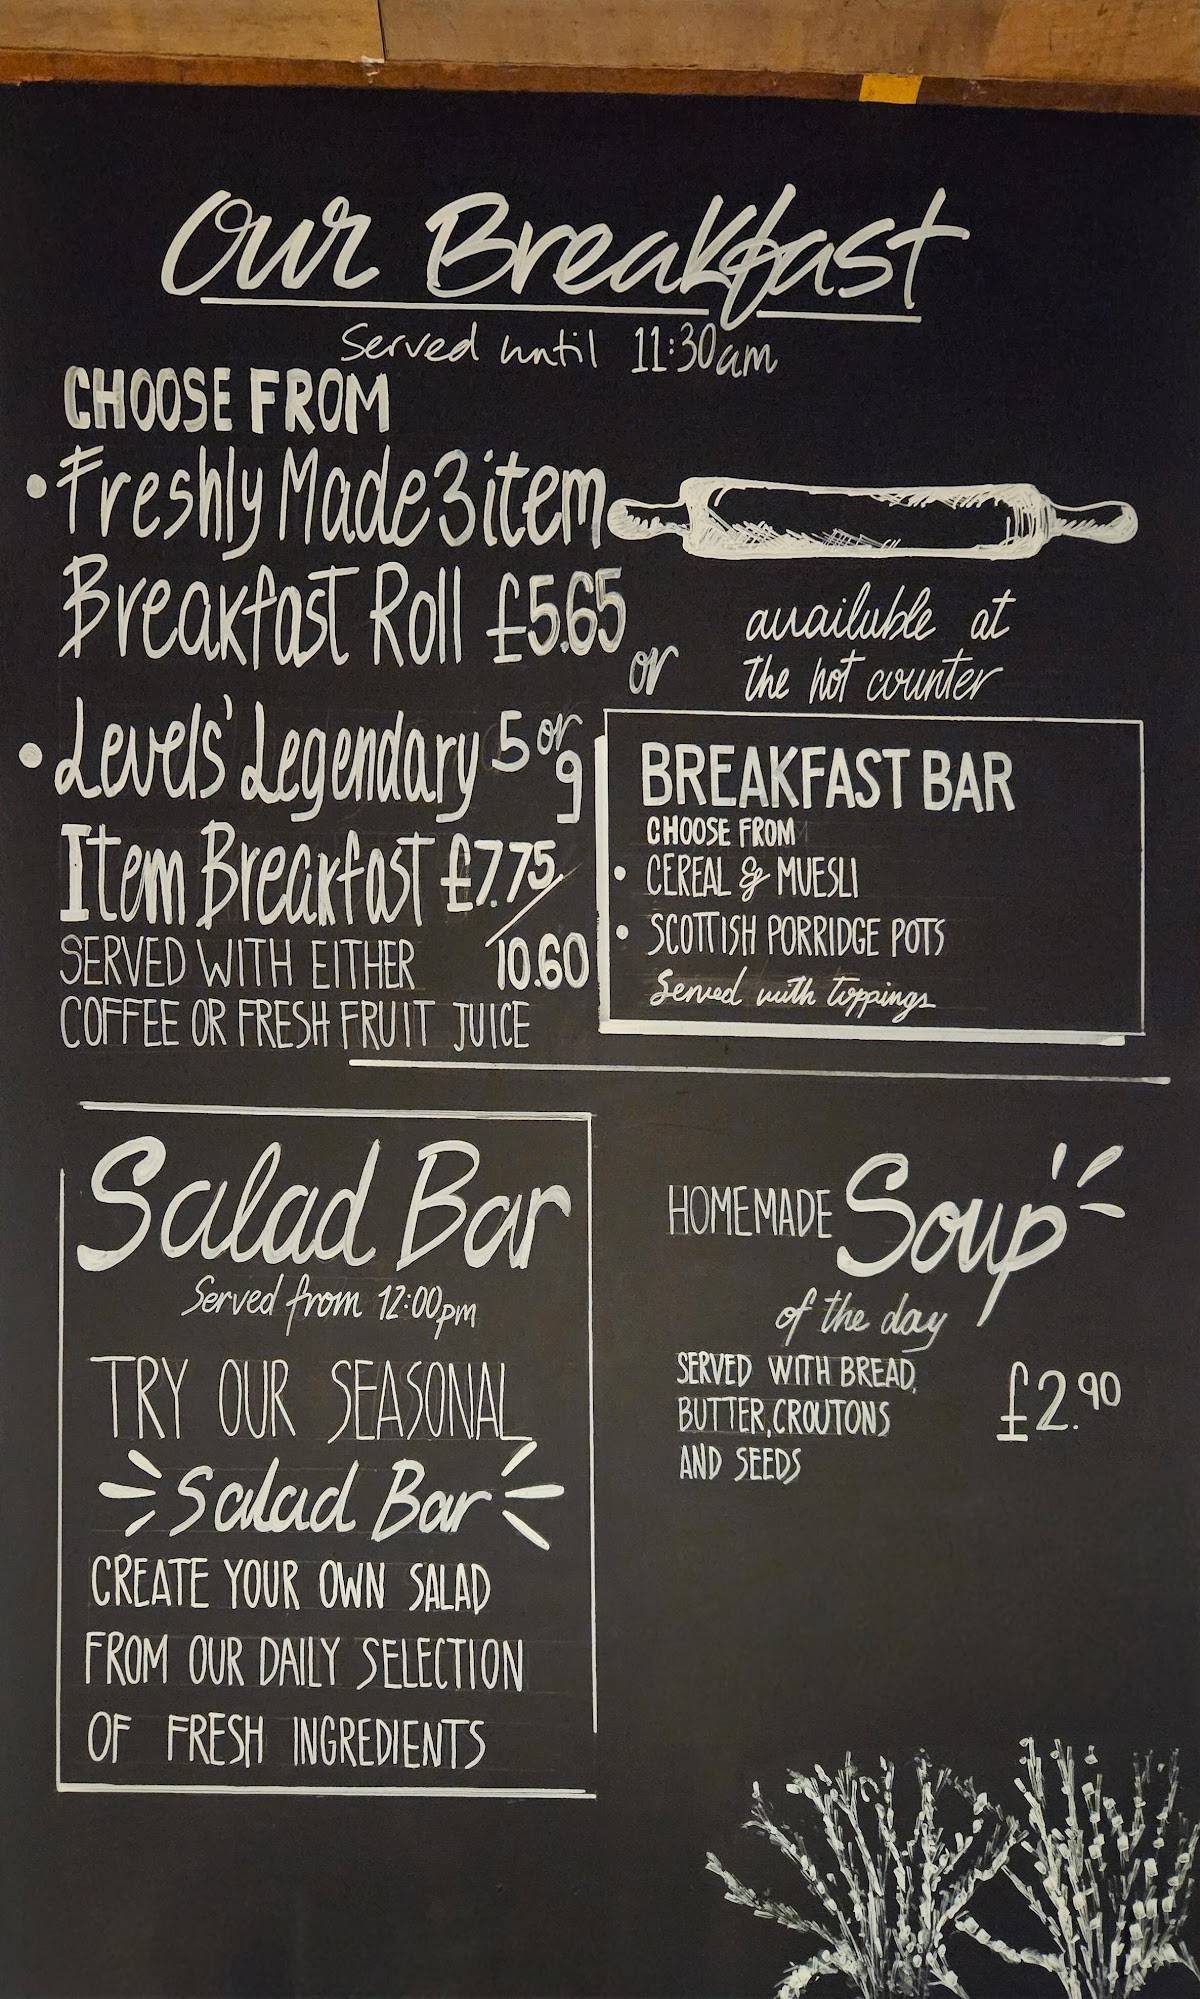 Our Breakfast
Served until 11:30am
CHOOSE FROM
• Freshly Made 3 item
Breakfast Roll £5.65
or
available at
the hot counter
• Levels' Legendary 5 or 9
Item Breakfast £7.75/
10.60
SERVED WITH EITHER
COFFEE OR FRESH FRUIT JUICE
BREAKFAST BAR
CHOOSE FROM
• CEREAL & MUESLI
• SCOTTISH PORRIDGE POTS
Served with toppings
Salad Bar
Served from 12:00pm
TRY OUR SEASONAL
Salad Bar
CREATE YOUR OWN SALAD
FROM OUR DAILY SELECTION
OF FRESH INGREDIENTS
HOMEMADE Soup
of the day
SERVED WITH BREAD,
BUTTER, CROUTONS
AND SEEDS
£2.90